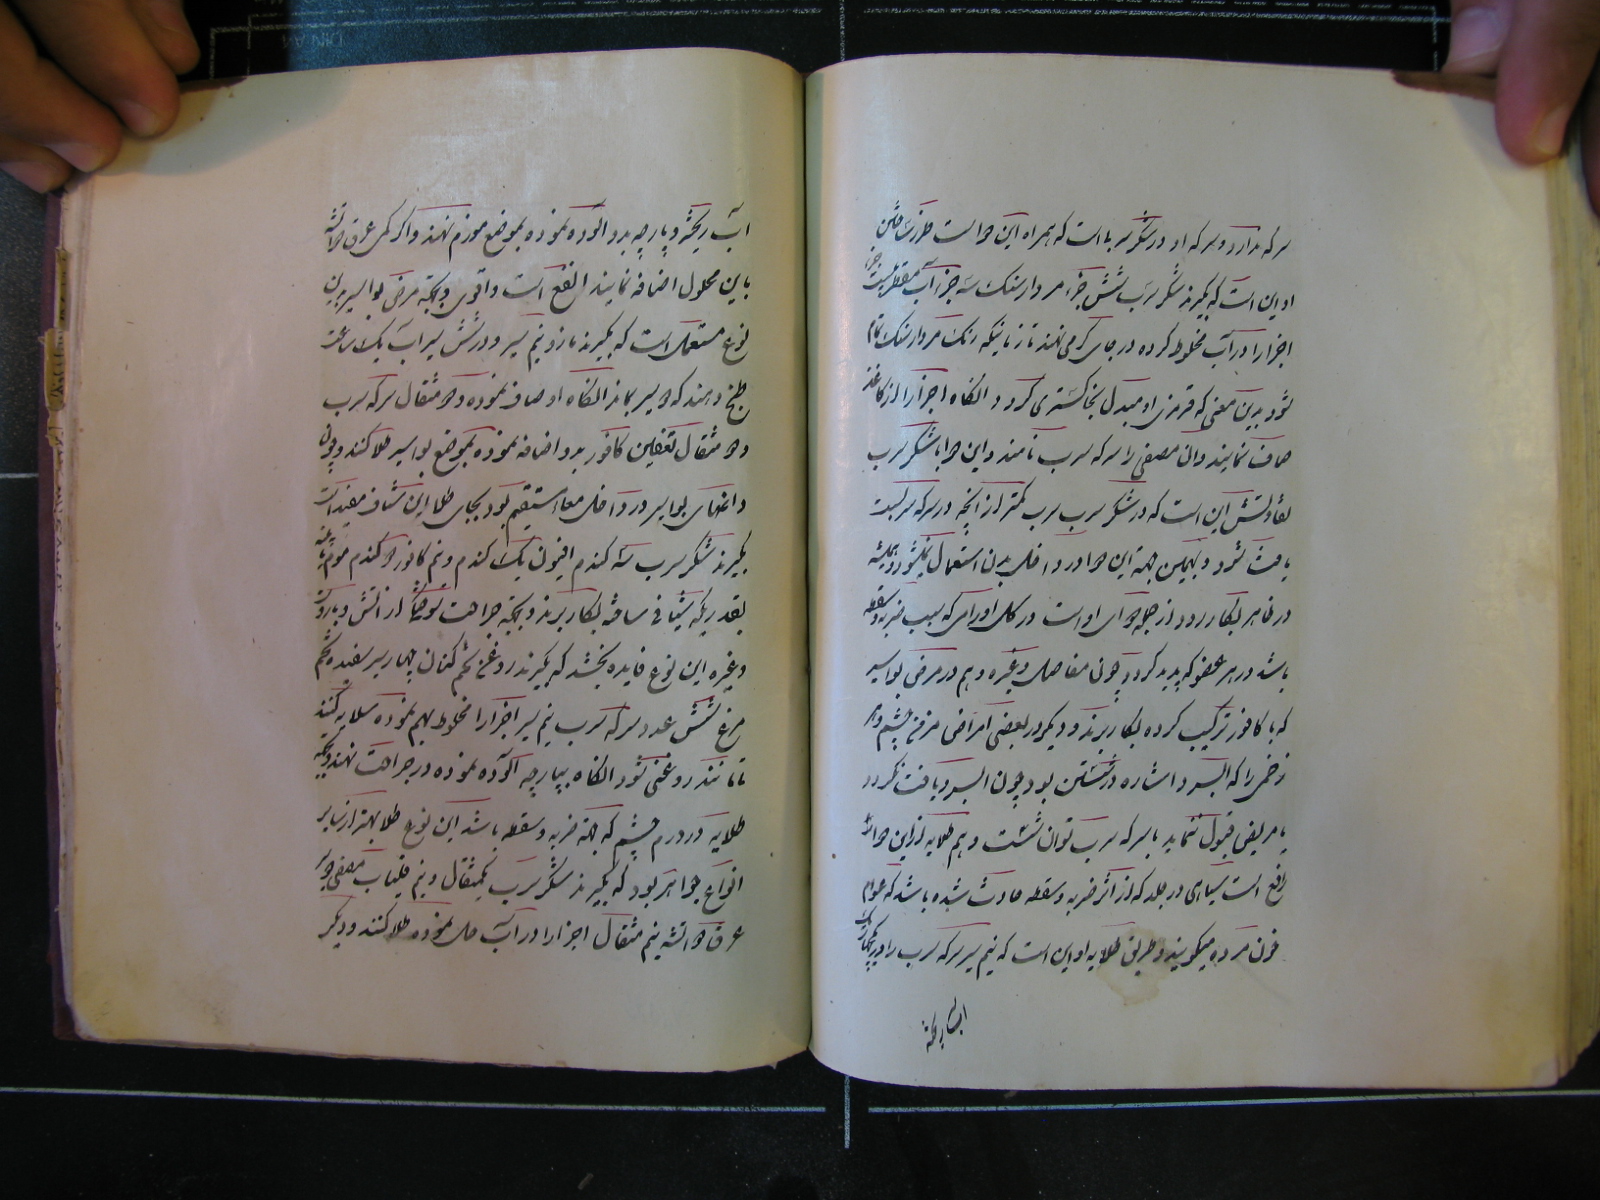 سرکه ندارد و سرکه او در شکر سرب با است که همراه این دوا است طرز ساختن
او این است که بگیرند شکر سرب شش جزء مردار سنک سه جزء آب مقطر بیست جزء
اجزا را در آب مخلوط کرده در جای گرمی نهند تا زمانیکه رنک مردار سنک تمام
شود بدین معنی که قرمزی او مبدل بخاکستری گردد و انگاه اجزا را از کاغذ
صاف نمایند و ان مصفی را سرکه سرب نامند و این دوا با شکر سرب
تفاوتش این است که در شکر سرب سرب کمتر از آنچه در سرکه سربست
یافت شود و بهمین جهة این دوا در داخل بدن استعمال نمیشود و همیشه
در ظاهر بکار رود از جمله دوای او است در کل اورامی که بسبب ضربه و سقطه
باشد در هر عضو که پدید گردد چون مفاصل و غیره و هم در مرض بواسیر
که با کافور ترکیب کرده بکار برند و دیگر در بعضی امراض مزمنه چشم و هر
زخمی را که البسرد اشاره در شستن بود چون البسرد یافت نکردد
یا مریض قبول ننماید با سرکه سرب توان شست و هم طلایه از این دوا
رافع است سیاهی در جلد که از اثر ضربه و سقطه حادث شده باشد که عوام
خون مرده میگویند و طریق طلایه او این است که نیم سیر سرکه سرب را در یکچهاریک
آب ریخته
اب ریخته و پارچه بدو آلوده نموده بموضع مورم نهند و اگر کمی عرق دواتشه
باین محلول اضافه نمایند انفع است و اقوی و بجهة مرض بواسیر بدین
نوع مستعمل است که بگیرند مازو نیم سیر و در شش سیر اب یک ساعت
طبخ دهند که دو سیر بماند انگاه او صاف نموده دو مثقال سرکه سرب
و دو مثقال کافور بدو اضافه نموده بموضع بواسیر طلا کنند و چون
دانهای بواسیر در داخل معاء مستقیم بود بجای طلا این شیاف مفید است
بگیرند شکر سرب سه کندم افیون یک کندم و نیم کافور دو کندم موم
بقدریکه شیافی ساخته بکار برند و بجهة جراحت سوختگی از اتش و باروت
و غیره این نوع فایده بخشد که بگیرند روغن تخم کتان چهار سیر سفیده تخم
مرغ شش عدد سرکه سرب نیم سیر اجزا را مخلوط بهم نموده سلایه کنند
تا مانند روغنی شود انگاه بپارچه آلوده نموده در جراحت نهند و بجهة
طلایه در درم چشم که بجهة ضربه و سقطه باشد این نوع طلا بهتر از سایر
انواع جواهر بود که بگیرند شکر سرب یکمثقال و نیم قلیاب مصفی دو سیر
عرق دواتشه نیم مثقال اجزا را در آب حل نموده طلا کنند و دیگر